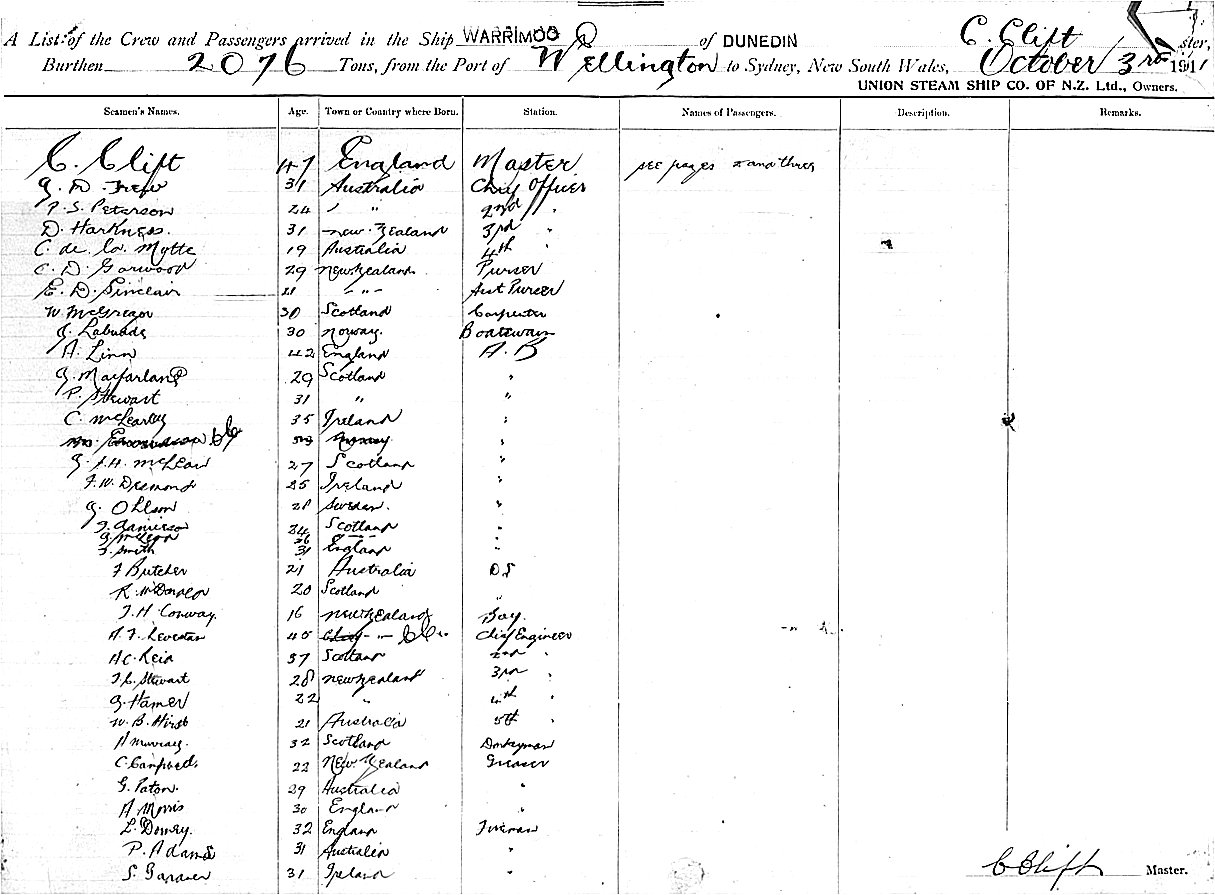 A List of the Crew and Passengers arrived in the Ship WARRIMOO of DUNEDIN C. Clift Master,
Burthen 2076 Tons, from the Port of Wellington to Sydney, New South Wales, October 3rd 1911
UNION STEAM SHIP CO. OF N.Z. Ltd., Owners.
Seamen's Names. Age. Town or Country where Born. Station. Names of Passengers. Description. Remarks.
C. Clift 47 England Master see pages and three
G. D. Frew 31 Australia Chief Officer
S. Peterson 24 " " 2nd "
D. Harkness. 31 New Zealand 3rd "
C. de la Motte 19 Australia 4th "
C. D. Garwood 29 New Zealand Purser
E. D. Sinclair 21 " " Asst Purser
W. McGregor 30 Scotland Carpenter
30 Norway. Boatswain
A. Linn 42 England A.B
G. Macfarland 29 Scotland "
P. Stewart 31 " "
C. 35 Ireland "
J.H. McLean 27 Scotland "
J.W. Desmond 25 Ireland "
G. Ohlson Sweden. "
Jamieson Scotland "
26 " "
Smith 31 England "
F Butcher 21 Australia O.S
R. McDonald 20 Scotland "
J. H. Conway. 16 New Zealand Boy.
45 " Chief Engineer
H.C. Reid 37 Scotland 2nd "
J.C. Stewart 28 New Zealand 3rd "
G. Hamer 22 " 4th "
W. B. Hirst 21 Australia 5th "
H Murray. 32 Scotland Donkeyman
C Campbell. 22 New Zealand Greaser
G. Paton. 29 Australia "
A Morris 30 England "
L. Downey. 32 England Fireman
P. Adams 31 Australia "
S. Gardner 31 Ireland "
C Clift Master.